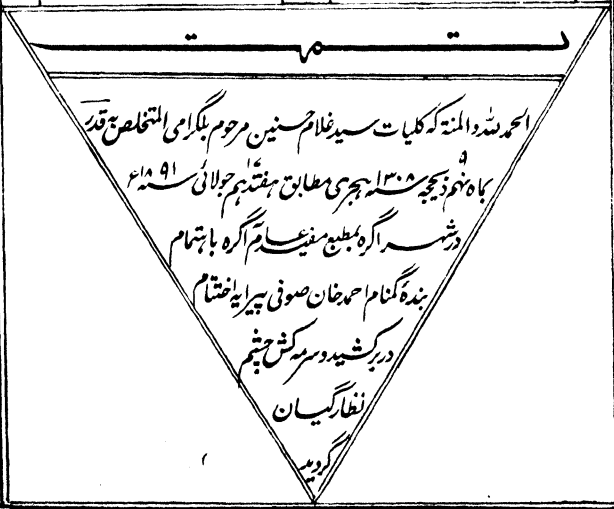 تمت
الحمد للہ والمنۃ کہ کلیات سید غلام حسنین مرحوم بلگرامی المتخلص بہ قدر
بماہ نہم ۹ ذیحجہ سنہ ۱۳۰۸ ہجری مطابق ہفتدہم ۱۷ جولائی سنہ ۱۸۹۱ء
در شہر اگرہ بمطبع مفید عام آگرہ باہتمام
بندۂ گمنام احمد خان صوفی پیرایہ اختتام
در بر کشید و سرمہ کش چشم
نظارگیان
گردید